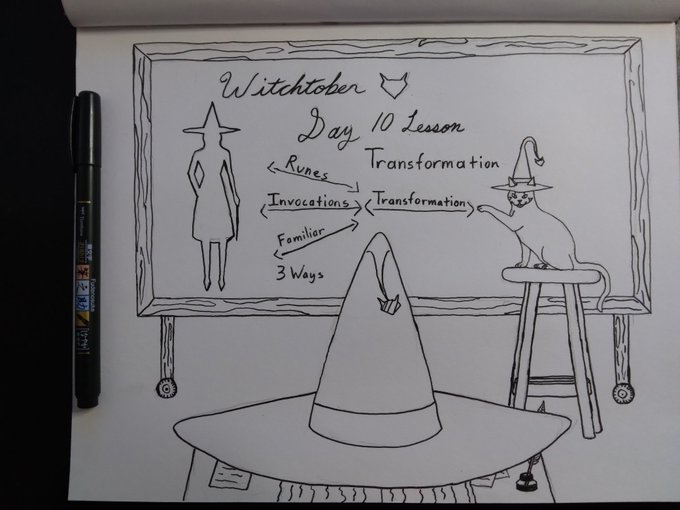 Witchtober
Day 10 Lesson
Transformation
Runes
Invocations
Transformation
Familiar
3 Ways